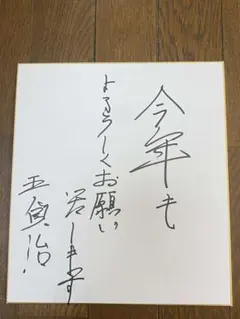 今年も
よろしくお願い
致します
玉貞治